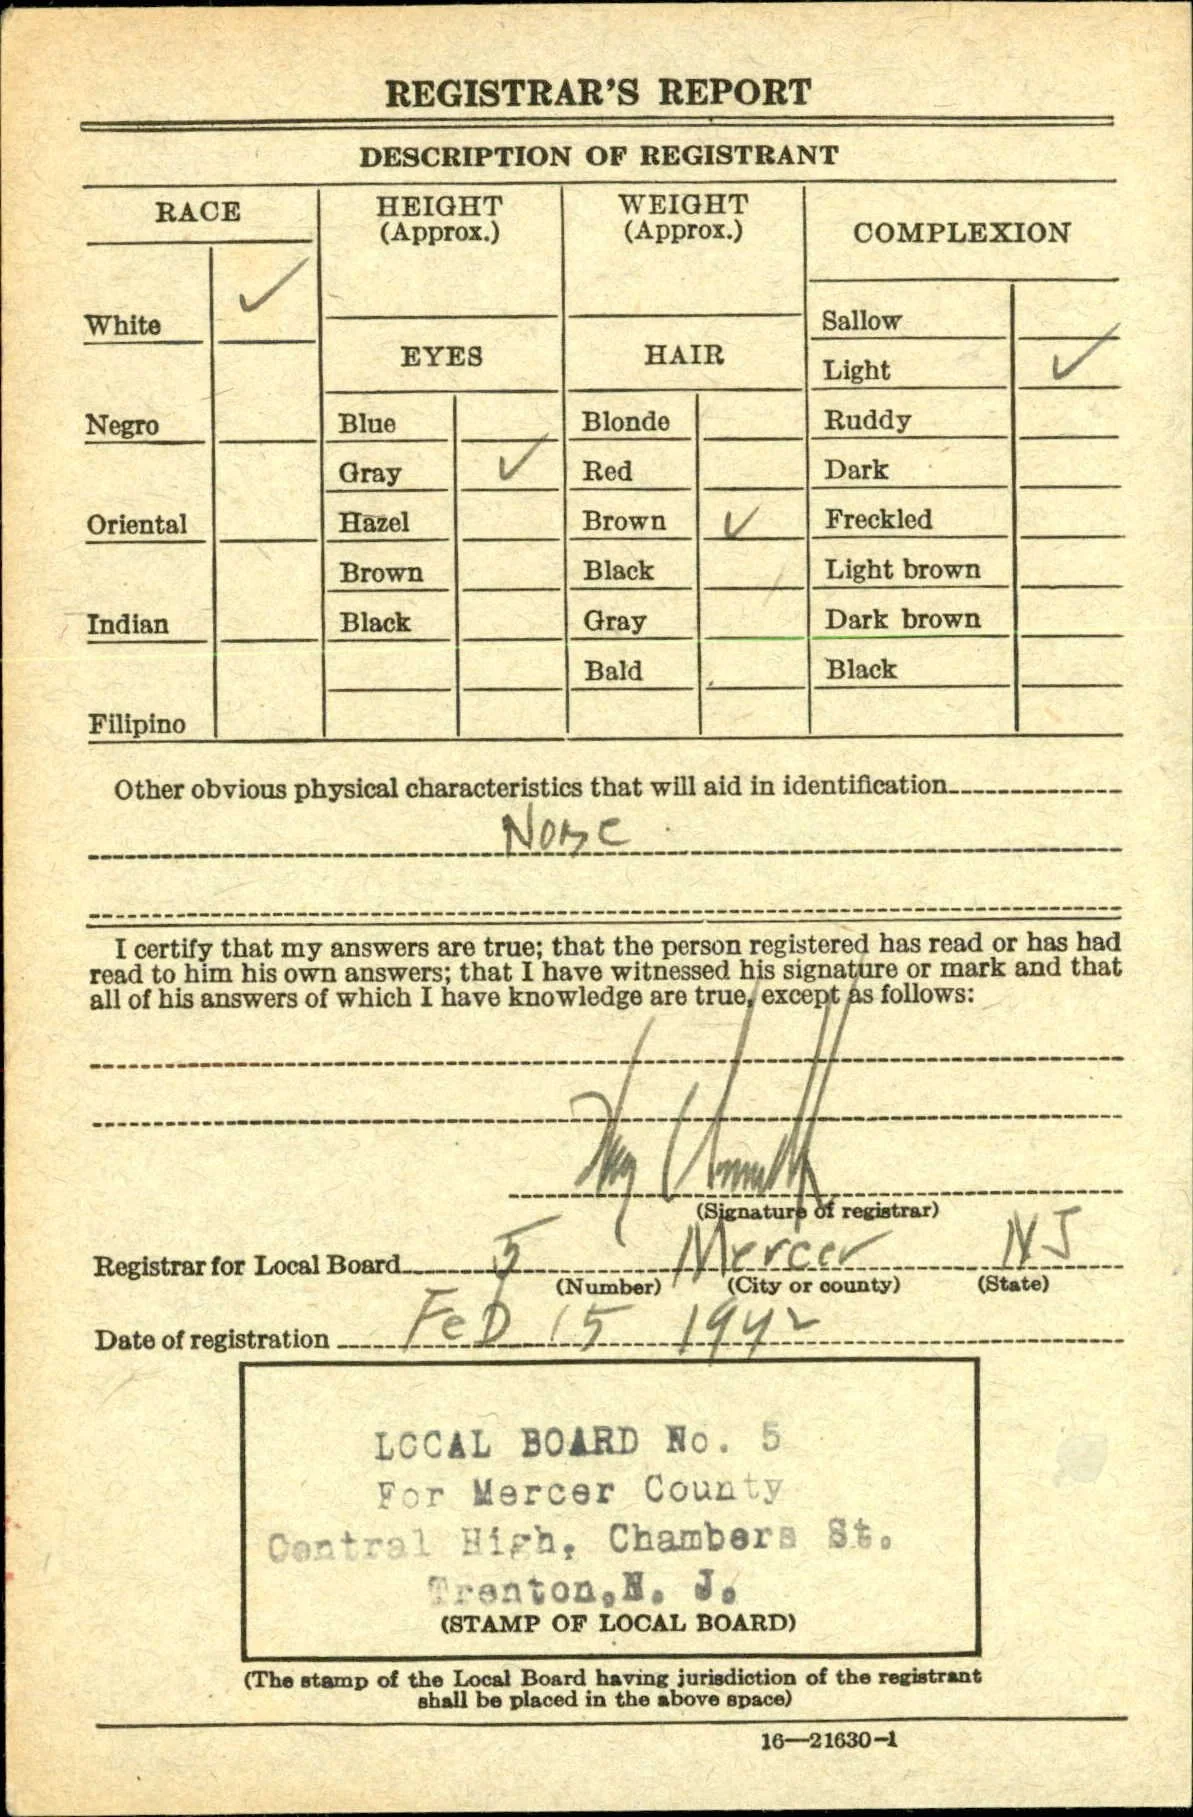 REGISTRAR'S REPORT
DESCRIPTION OF REGISTRANT
RACE
HEIGHT
(Approx.)
WEIGHT
(Approx.)
COMPLEXION
White ✓
Negro
Oriental
Indian
Filipino
EYES
Blue
Gray ✓
Hazel
Brown
Black
HAIR
Blonde
Red
Brown ✓
Black
Gray
Bald
Sallow
Light ✓
Ruddy
Dark
Freckled
Light brown
Dark brown
Black
Other obvious physical characteristics that will aid in identification
None
I certify that my answers are true; that the person registered has read or has had
read to him his own answers; that I have witnessed his signature or mark and that
all of his answers of which I have knowledge are true, except as follows:
(Signature of registrar)
Registrar for Local Board 5 Mercer NJ
(Number) (City or county) (State)
Date of registration Feb 15 1942
LOCAL BOARD No. 5
For Mercer County
Central High, Chambers St.
Trenton, N. J.
(STAMP OF LOCAL BOARD)
(The stamp of the Local Board having jurisdiction of the registrant
shall be placed in the above space)
16—21630-1